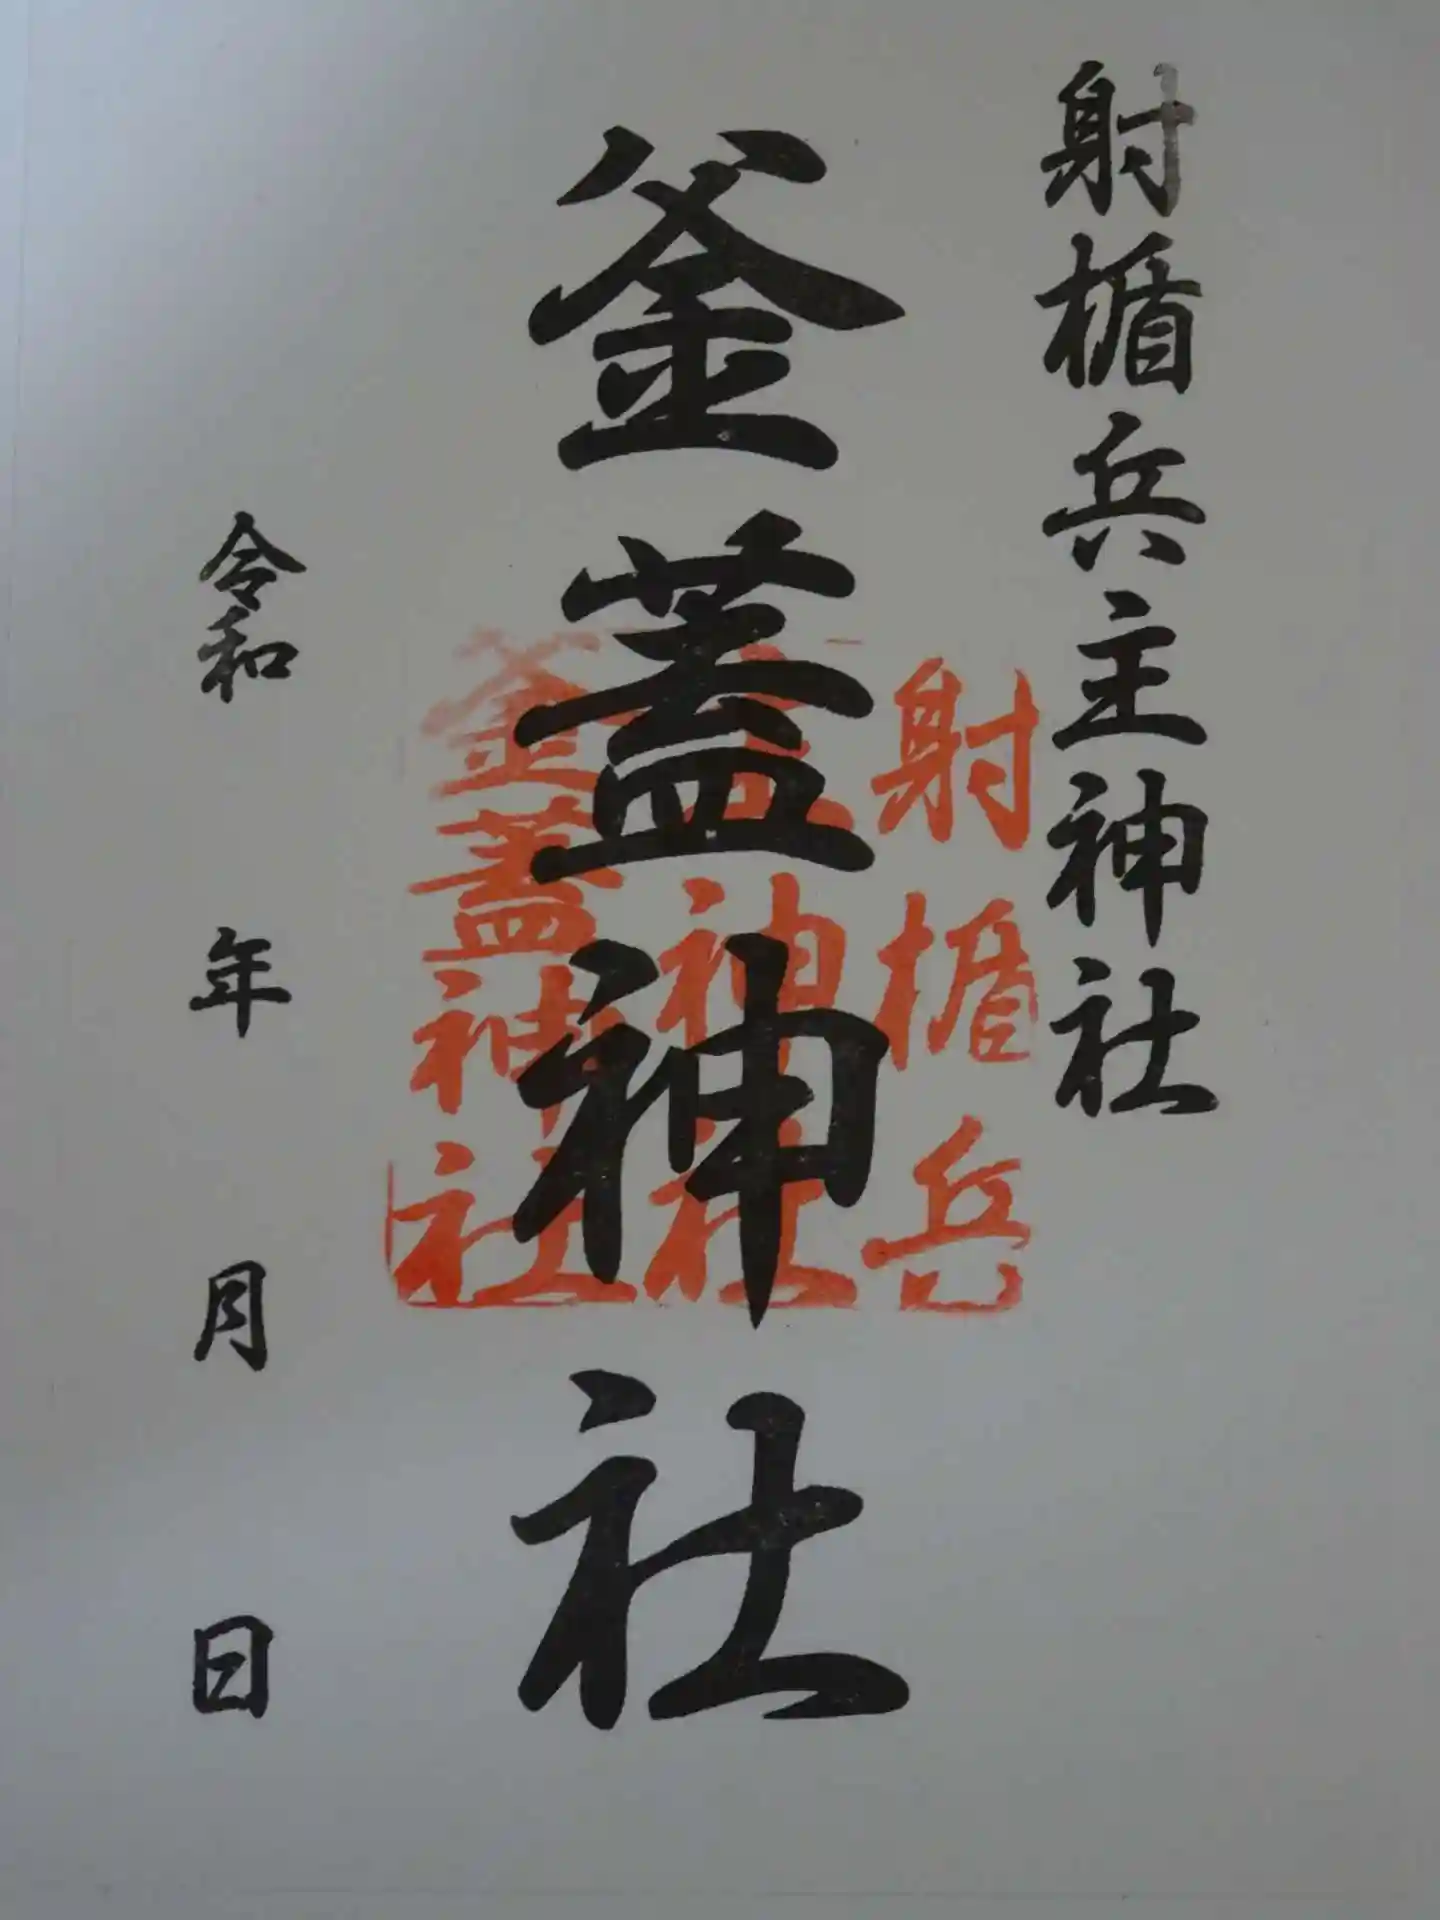 射楯兵主神社
釜蓋神社
射楯兵
主神社
釜蓋神社
令和 年 月 日